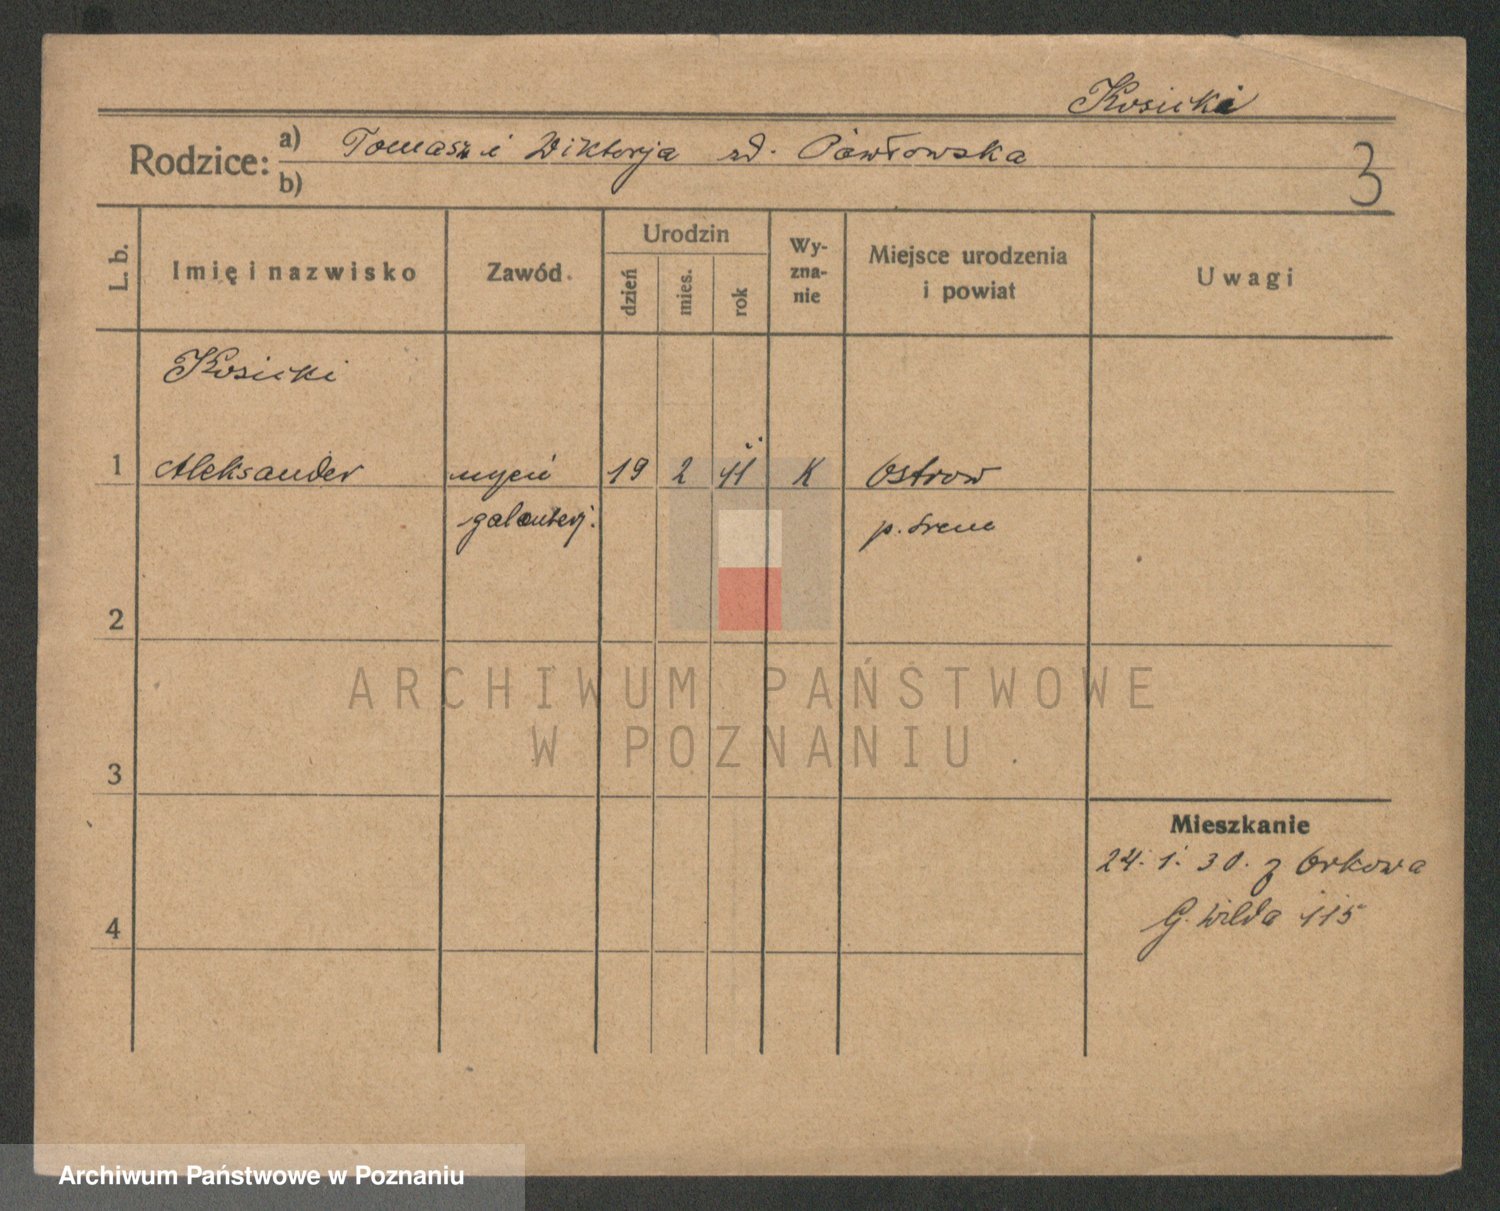 Kosicki
Rodzice: a) Tomasz i Wiktorja zd. Pawłowska
b)
3
L. b.
Imię i nazwisko
Zawód
Urodzin
dzień
mies.
rok
Wy-
zna-
nie
Miejsce urodzenia
i powiat
Uwagi
Kosicki
1 Aleksander uczeń 19 2 11 K Ostrow
galanterj. p. Srem
2
ARCHIWUM PAŃSTWOWE
W POZNANIU
3
Mieszkanie
24. 1. 30. z Orkowa
G. Wilda 115
4
Archiwum Państwowe w Poznaniu